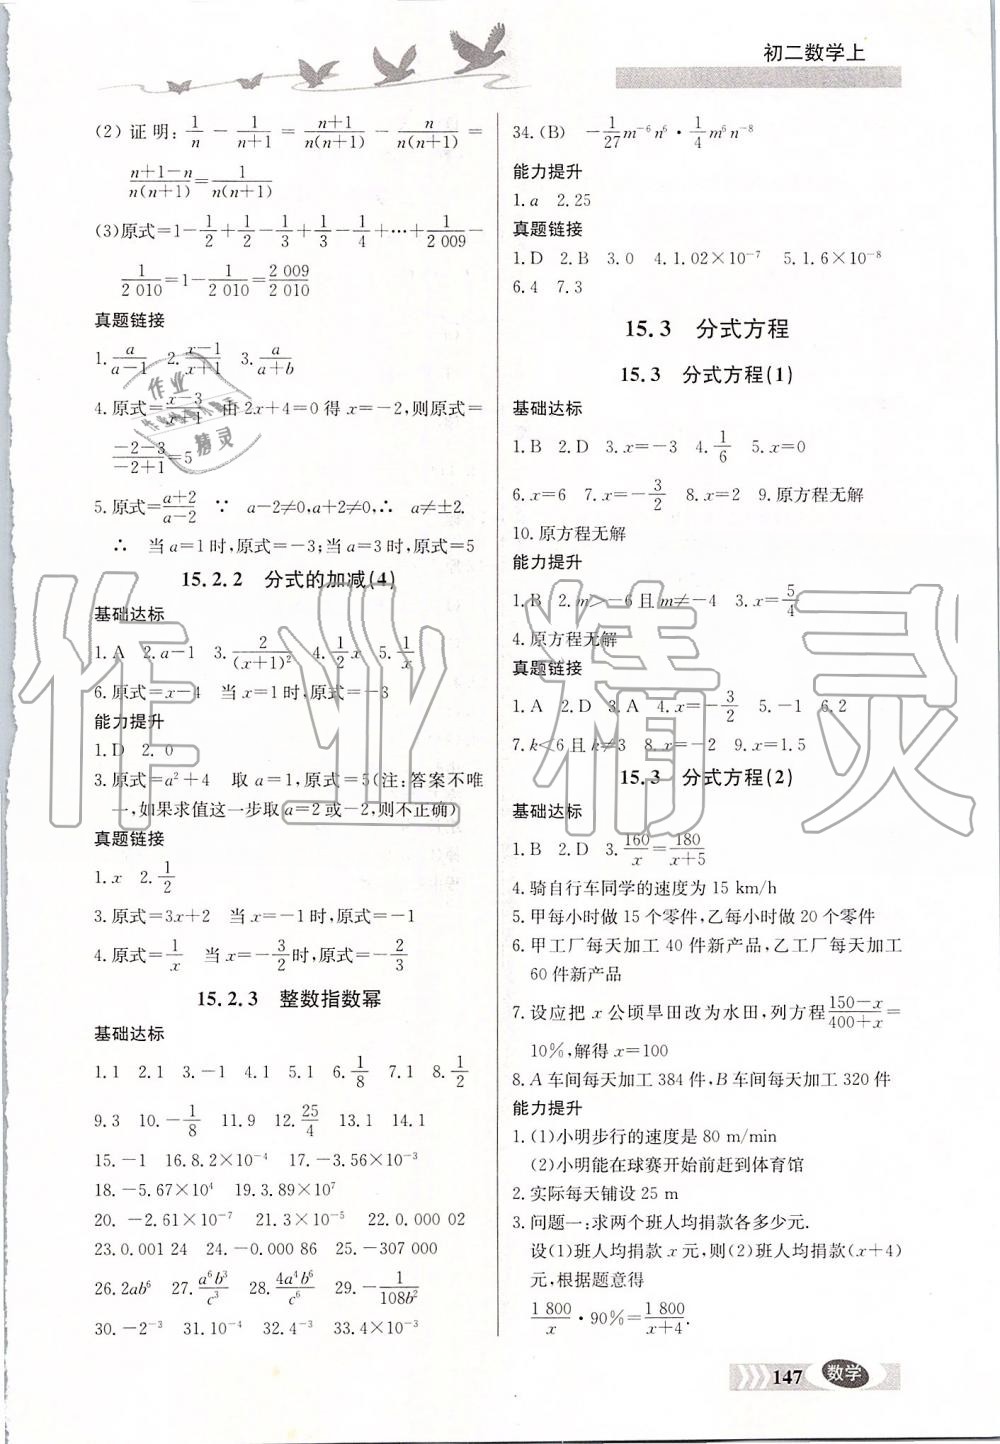 初二数学上
(2) 证明: 1/n - 1/(n+1) = (n+1)/n(n+1) - n/n(n+1) =
(n+1-n)/n(n+1) = 1/n(n+1)
(3)原式=1-1/2+1/2-1/3+1/3-1/4+…+1/2 009-
1/2 010=1-1/2 010=2 009/2 010
真题链接
1. a/(a-1) 2. (x-1)/(x+1) 3. a/(a+b)
4.原式=(x-3)/(x+1) 由 2x+4=0 得 x=-2,则原式=
(-2-3)/(-2+1)=5
5.原式=(a+2)/(a-2) ∵ a-2≠0,a+2≠0,∴ a≠±2.
∴ 当 a=1 时,原式=-3;当 a=3 时,原式=5
15.2.2 分式的加减(4)
基础达标
1.A 2.a-1 3. 2/(x+1)² 4. 1/2 x 5. 1/x
6.原式=x-4 当 x=1 时,原式=-3
能力提升
1.D 2.0
3.原式=a²+4 取 a=1,原式=5(注:答案不唯
一,如果求值这一步取 a=2 或-2,则不正确)
真题链接
1.x 2. 1/2
3.原式=3x+2 当 x=-1 时,原式=-1
4.原式=1/x 当 x=-3/2时,原式=-2/3
15.2.3 整数指数幂
基础达标
1.1 2.1 3.-1 4.1 5.1 6. 1/8 7.1 8. 1/2
9.3 10.-1/8 11.9 12. 25/4 13.1 14.1
15.-1 16.8.2×10⁻⁴ 17.-3.56×10⁻³
18.-5.67×10⁴ 19.3.89×10⁷
20. -2.61×10⁻⁷ 21.3×10⁻⁵ 22.0.000 02
23.0.001 24 24.-0.000 86 25.-307 000
26.2ab⁶ 27. a⁶b³/c³ 28. 4a⁴b⁶/c⁶ 29.-1/108b²
30.-2⁻³ 31.10⁻⁴ 32.4⁻³ 33.4×10⁻³
34.(B) -1/27 m⁻⁶n⁶·1/4 m⁶n⁻⁸
能力提升
1.a 2.25
真题链接
1.D 2.B 3.0 4.1.02×10⁻⁷ 5.1.6×10⁻⁸
6.4 7.3
15.3 分式方程
15.3 分式方程(1)
基础达标
1.B 2.D 3.x=-3 4. 1/6 5.x=0
6.x=6 7.x=-3/2 8.x=2 9.原方程无解
10.原方程无解
能力提升
1.B 2.m>-6 且 m≠-4 3.x=5/4
4.原方程无解
真题链接
1.A 2.D 3.A 4.x=-3/2 5.-1 6.2
7.k<6 且 k≠3 8.x=-2 9.x=1.5
15.3 分式方程(2)
基础达标
1.B 2.D 3. 160/x=180/(x+5)
4.骑自行车同学的速度为 15 km/h
5.甲每小时做 15 个零件,乙每小时做 20 个零件
6.甲工厂每天加工 40 件新产品,乙工厂每天加工
60 件新产品
7.设应把 x 公顷旱田改为水田,列方程(150-x)/(400+x)=
10%,解得 x=100
8.A 车间每天加工 384 件,B 车间每天加工 320 件
能力提升
1.(1)小明步行的速度是 80 m/min
(2)小明能在球赛开始前赶到体育馆
2.实际每天铺设 25 m
3.问题一:求两个班人均捐款各多少元.
设(1)班人均捐款 x 元,则(2)班人均捐款(x+4)
元,根据题意得
1 800/x·90%=1 800/(x+4).
147 数学
作业精灵